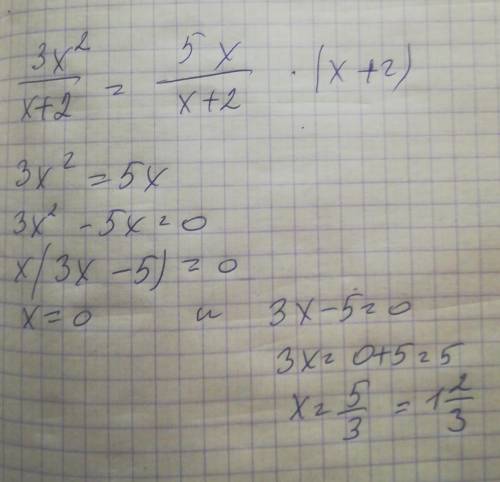 3x²/(x+2) = 5x/(x+2) · (x+2)
3x² = 5x
3x² - 5x = 0
x(3x - 5) = 0
x = 0 и 3x - 5 = 0
3x = 0+5 = 5
x = 5/3 = 1 2/3